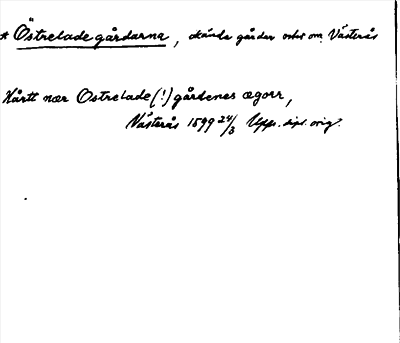 * Östrelade gårdarna, okända gårdar ost om Västerås
Hårtt nær Ostrelade (!) gårdenes ægorr,
Västerås 1599 24/3 Upps. dipl. orig.